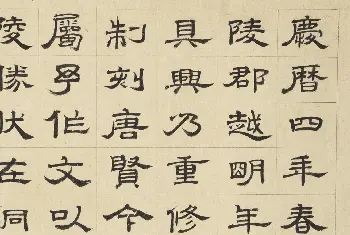 慶曆四年春
陵郡越明年
具興乃重修
制刻唐賢今
屬予作文以
陵勝狀在洞